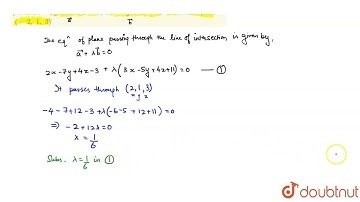 (-2, 1, 3)
The eqⁿ of plane passing through the line of intersection is given by,
a⃗ + λb⃗ = 0
2x - 7y + 4z - 3 + λ(3x - 5y + 4z + 11) = 0 —— ①
It passes through (2, 1, 3)
x y z
-4 - 7 + 12 - 3 + λ(-6 - 5 + 12 + 11) = 0
⇒ -2 + 12λ = 0
λ = 1/6
Subs. λ = 1/6 in ①
doubtnut